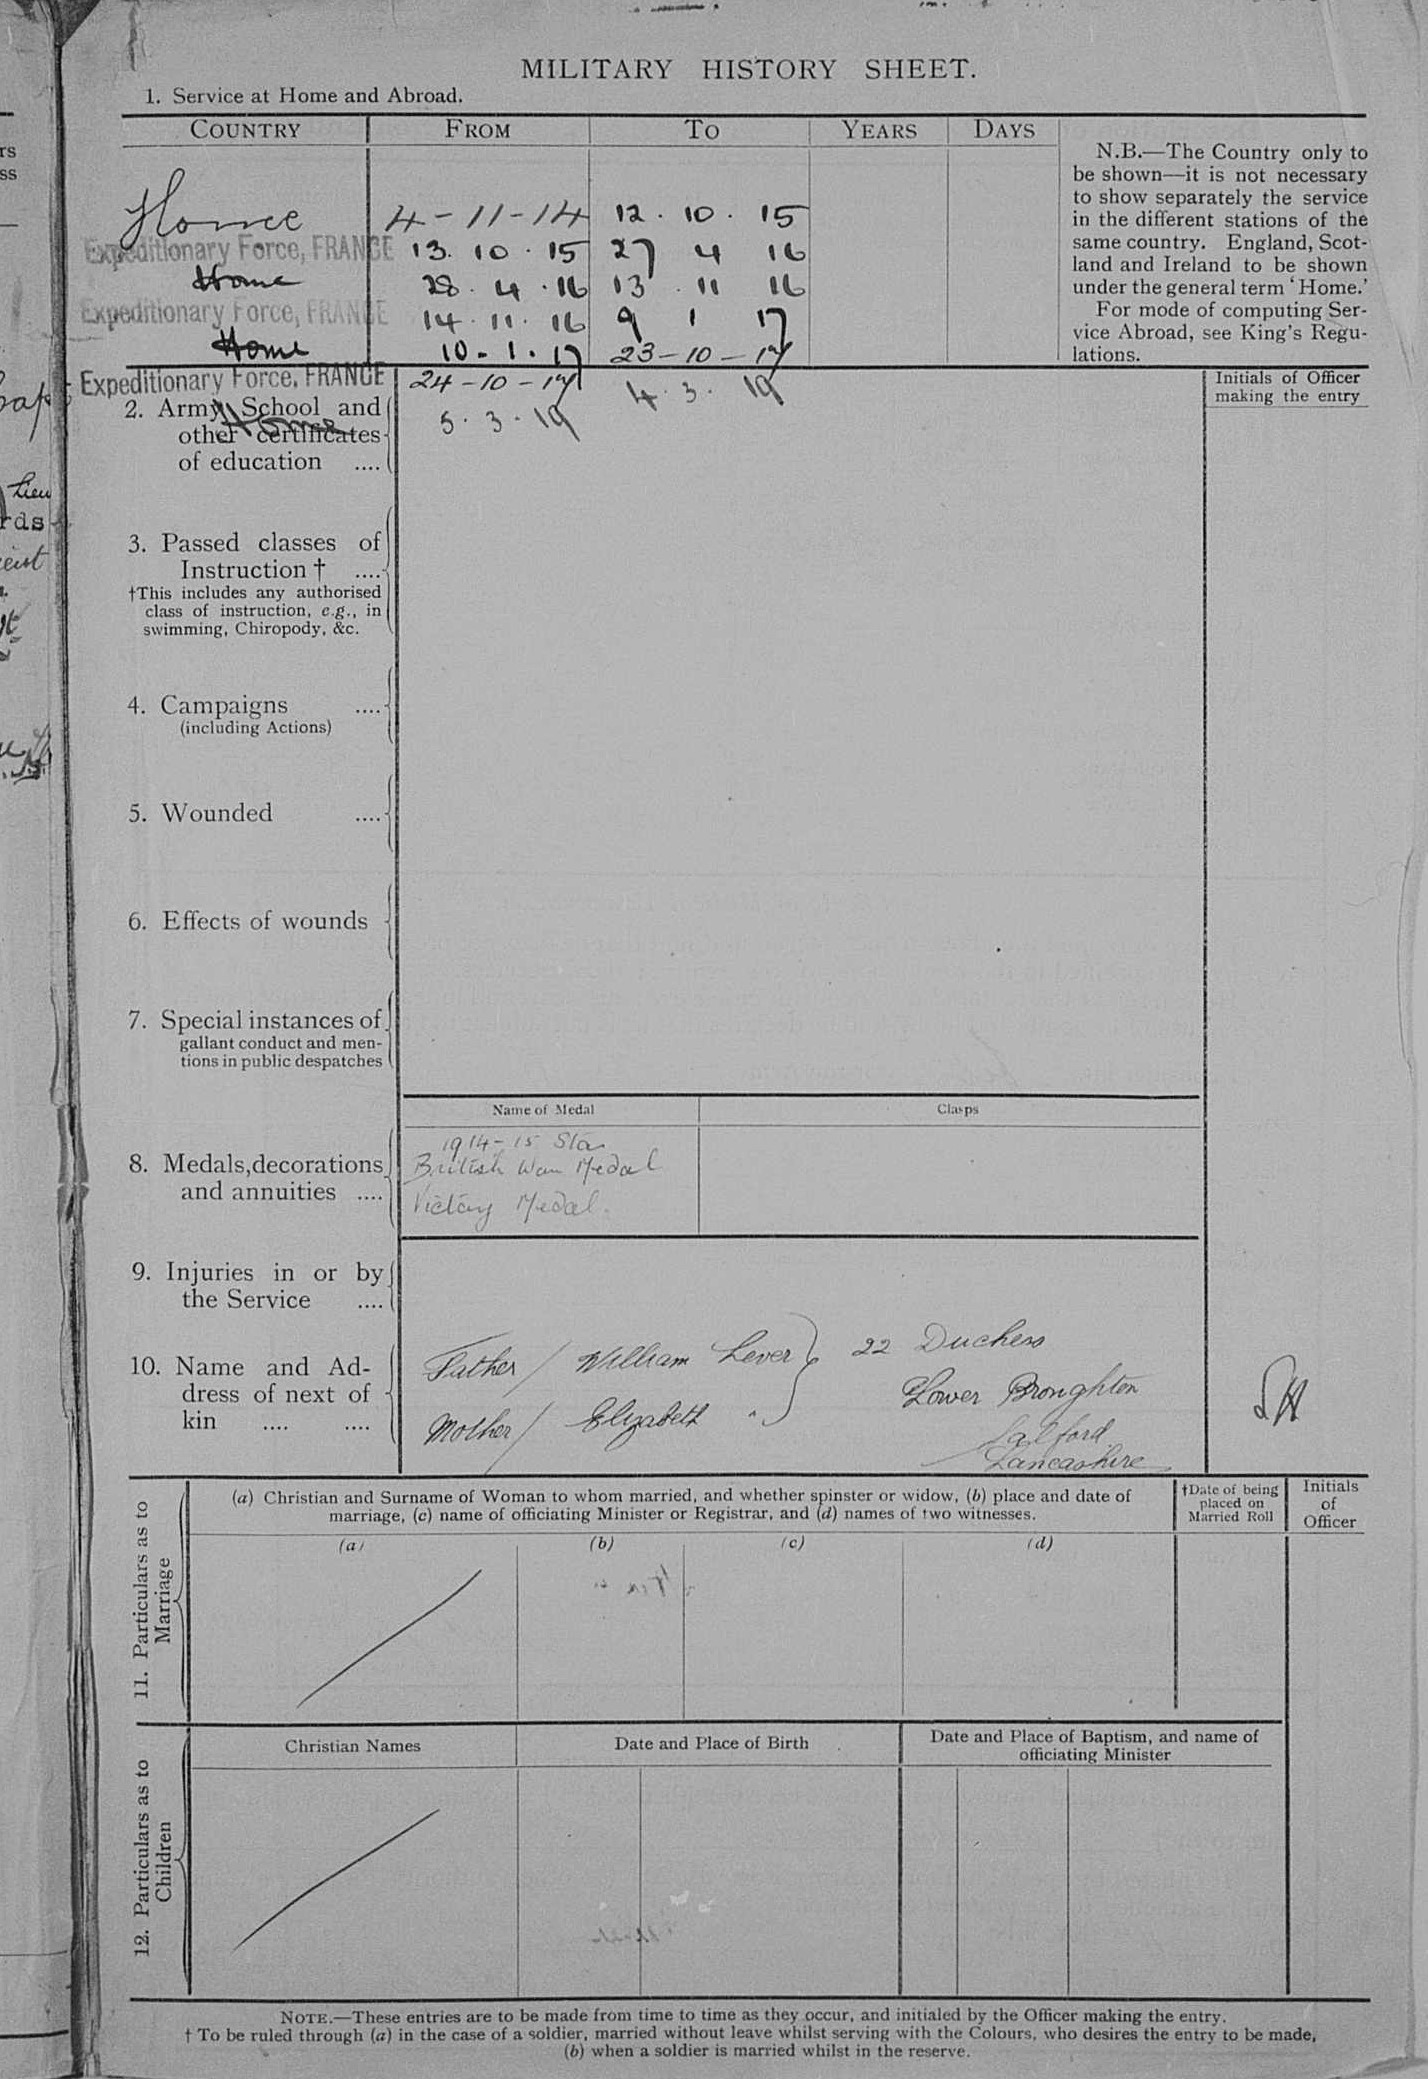 MILITARY HISTORY SHEET.
1. Service at Home and Abroad.
COUNTRY FROM TO YEARS DAYS
Home 4-11-14 12.10.15
Expeditionary Force, FRANCE 13.10.15 27 4 16
Home 28.4.16 13.11 16
Expeditionary Force, FRANCE 14.11.16 9 1 17
Home 10-1.17 23-10-17
Expeditionary Force, FRANCE 24-10-17 4.3.19
Home 5.3.19
N.B.—The Country only to
be shown—it is not necessary
to show separately the service
in the different stations of the
same country. England, Scot-
land and Ireland to be shown
under the general term 'Home.'
For mode of computing Ser-
vice Abroad, see King's Regu-
lations.
Initials of Officer
making the entry
2. Army School and
other certificates
of education ....
3. Passed classes of
Instruction † ....
†This includes any authorised
class of instruction, e.g., in
swimming, Chiropody, &c.
4. Campaigns ....
(including Actions)
5. Wounded ....
6. Effects of wounds
7. Special instances of
gallant conduct and men-
tions in public despatches
Name of Medal Clasps
8. Medals, decorations
and annuities ....
1914-15 Star
British War Medal
Victory Medal.
9. Injuries in or by
the Service ....
10. Name and Ad-
dress of next of
kin .... ....
Father / William Lever } 22 Duchess
Mother / Elizabeth " Lower Broughton
Salford
Lancashire
11. Particulars as to
Marriage
(a) Christian and Surname of Woman to whom married, and whether spinster or widow, (b) place and date of
marriage, (c) name of officiating Minister or Registrar, and (d) names of two witnesses.
†Date of being
placed on
Married Roll
Initials
of
Officer
(a) (b) (c) (d)
12. Particulars as to
Children
Christian Names Date and Place of Birth
Date and Place of Baptism, and name of
officiating Minister
NOTE.—These entries are to be made from time to time as they occur, and initialed by the Officer making the entry.
† To be ruled through (a) in the case of a soldier, married without leave whilst serving with the Colours, who desires the entry to be made,
(b) when a soldier is married whilst in the reserve.